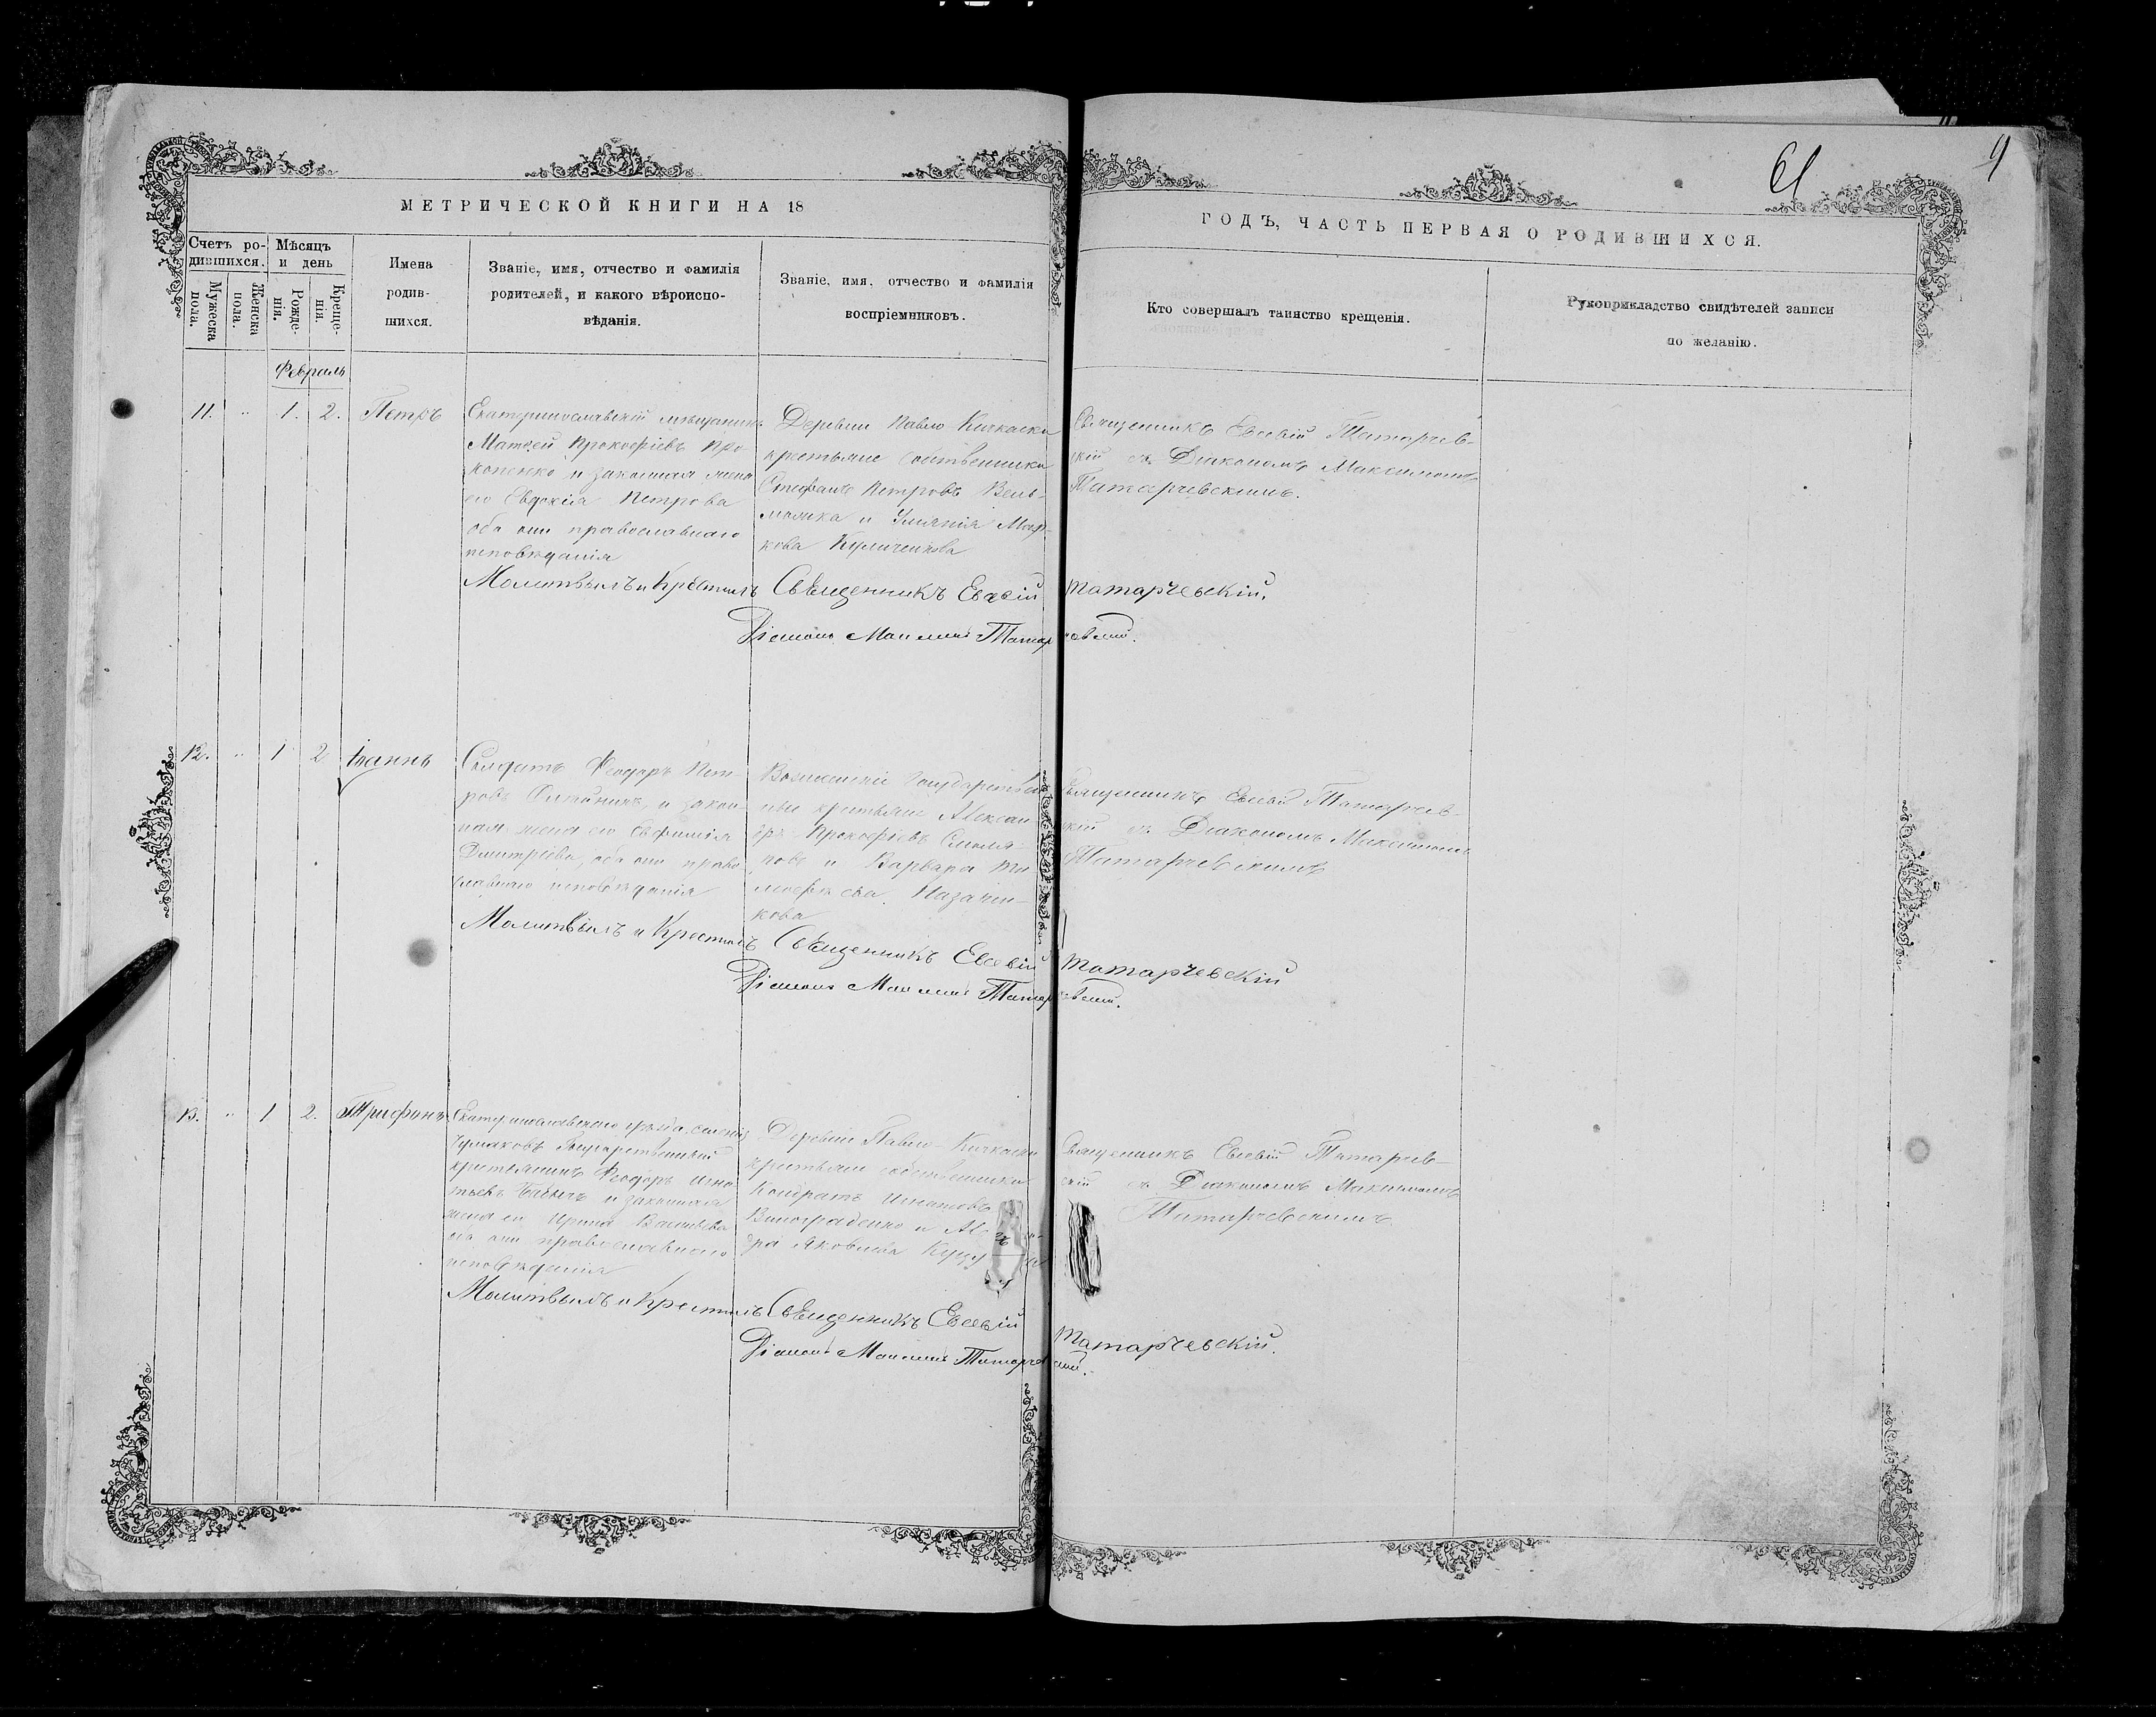 61
9
МЕТРИЧЕСКОЙ КНИГИ НА 18
ГОДЪ, ЧАСТЬ ПЕРВАЯ О РОДИВШИХСЯ.
Счетъ ро-
дившихся.
Мужеска
пола.
Женска
пола.
Мѣсяцъ
и день
Рожде-
нія.
Креще-
нія.
Имена
родив-
шихся.
Званіе, имя, отчество и фамилія
родителей, и какого вѣроиспо-
вѣданія.
Званіе, имя, отчество и фамилія
воспріемниковъ.
Кто совершалъ таинство крещенія.
Рукоприкладство свидѣтелей записи
по желанію.
Февраль
11. " 1. 2. Петръ
Екатеринославскій мѣщанинъ
Матѳей Прокофіевъ Про-
копенко и законная жена
его Евдокія Петрова
оба они православнаго
исповѣданія
Деревни Павло Кичкаса
крестьяне собственники
Стефанъ Петровъ Вель-
можка и Мар-
кова
Священникъ Евсевій Татарчев-
скій съ Діакономъ Максимомъ
Татарчевскимъ.
Молитвилъ и Крестилъ Священникъ Евсевій Татарчевскій.
Діаконъ Максимъ Татарчевскій.
12. " 1 2 Іоаннъ
Солдатъ Феодоръ Пет-
ровъ и закон-
ная жена его Евфимія
Дмитріева, оба они право
славнаго исповѣданія
Государствен
ные крестьяне Алексан-
дръ Прокофіевъ Смоля-
ковъ и Варвара Ти
моѳеева
кова
Священникъ Евсевій Татарчев-
скій съ Діакономъ Максимомъ
Татарчевскимъ
Молитвилъ и Крестилъ Священникъ Евсевій Татарчевскій
Діаконъ Максимъ Татарчевскій.
13. " 1 2. Трифонъ
Екатеринославскаго уѣзда, селенія
Чумаковъ Государственный
крестьянинъ Феодоръ Игна
тьевъ Бабичъ и законная
жена его Ирина Васильева
оба они православнаго
исповѣданія
Деревни Павло-Кичкаса
крестьяне собственники
Кондратъ Игнатовъ
Винограденко и
Яковлева
Священникъ Евсевій Татарчев-
скій съ Діакономъ Максимомъ
Татарчевскимъ.
Молитвилъ и Крестилъ Священникъ Евсевій Татарчевскій.
Діаконъ Максимъ Татарчевскій.